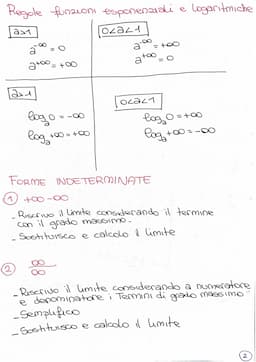 Regole funzioni esponenziali e logaritmiche
a>1
a^-∞ = 0
a^+∞ = +∞
0<a<1
a^-∞ = +∞
a^+∞ = 0
a>1
log_a 0 = -∞
log_a +∞ = +∞
0<a<1
log_a 0 = +∞
log_a +∞ = -∞
FORME INDETERMINATE
① +∞-∞
- Riscrivo il limite considerando il termine
con il grado massimo.
- Sostituisco e calcolo il limite
② ∞/∞
- Riscrivo il limite considerando a numeratore
e denominatore i termini di grado massimo
- Semplifico
- Sostituisco e calcolo il limite
2